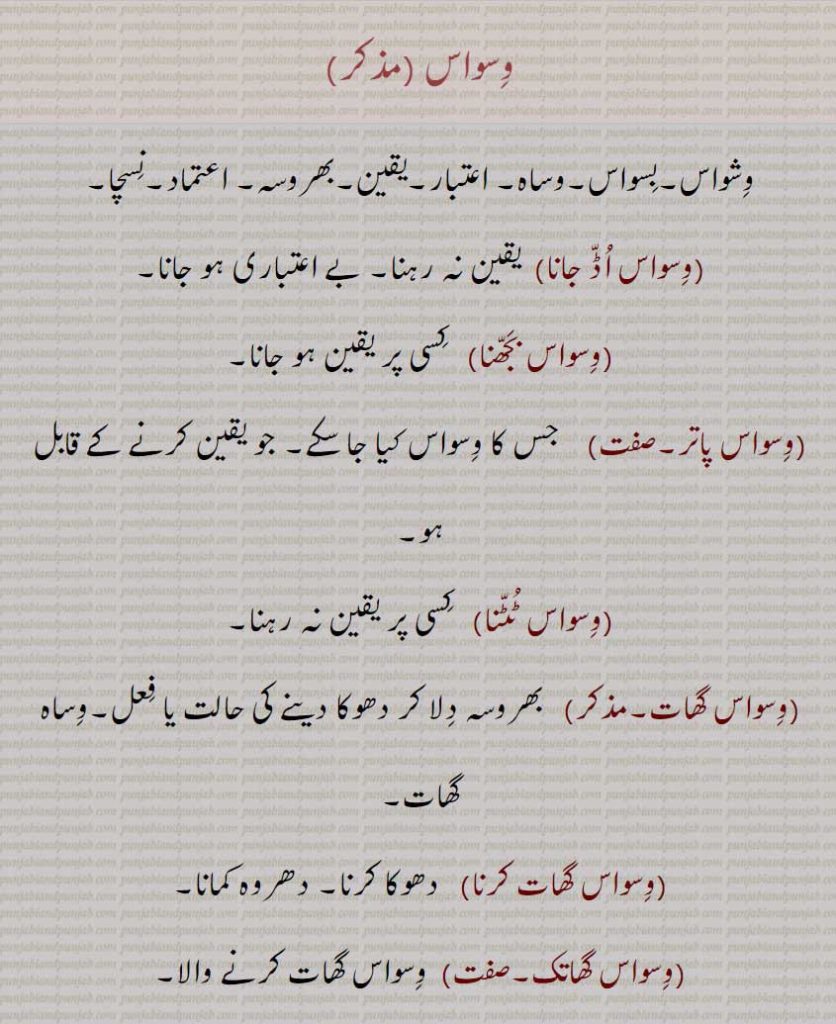 وِسواس (مذکر)
وِشواس۔بِسواس۔وساہ۔ اعتبار۔یقین۔بھروسہ۔ اعتماد۔نِسچا۔
(وِسواس اُڈّ جانا) یقین نہ رہنا۔ بے اعتباری ہو جانا۔
(وِسواس بَجّھنا) کِسی پر یقین ہو جانا۔
(وِسواس پاتر۔صفت) جس کا وِسواس کیا جا سکے۔ جو یقین کرنے کے قابل
ہو۔
(وِسواس ٹُٹّنا) کِسی پر یقین نہ رہنا۔
(وِسواس گھات۔مذکر) بھروسہ دِلا کر دھوکا دینے کی حالت یا فِعل۔وِساہ
گھات۔
(وِسواس گھات کرنا) دھوکا کرنا۔ دھروہ کمانا۔
(وِسواس گھاتک۔صفت) وِسواس گھات کرنے والا۔